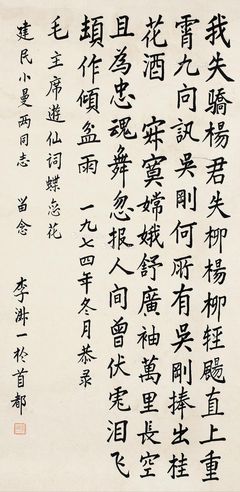 我失驕楊君失柳楊柳輕颺直上重
霄九问訊吳剛何所有吳剛捧出桂
花酒 寂寞嫦娥舒廣袖萬里長空
且為忠魂舞忽报人间曾伏虎泪飞
頓作傾盆雨 一九七四年冬月恭录
毛主席遊仙词蝶恋花
建民小曼两同志 留念
李淑一於首都